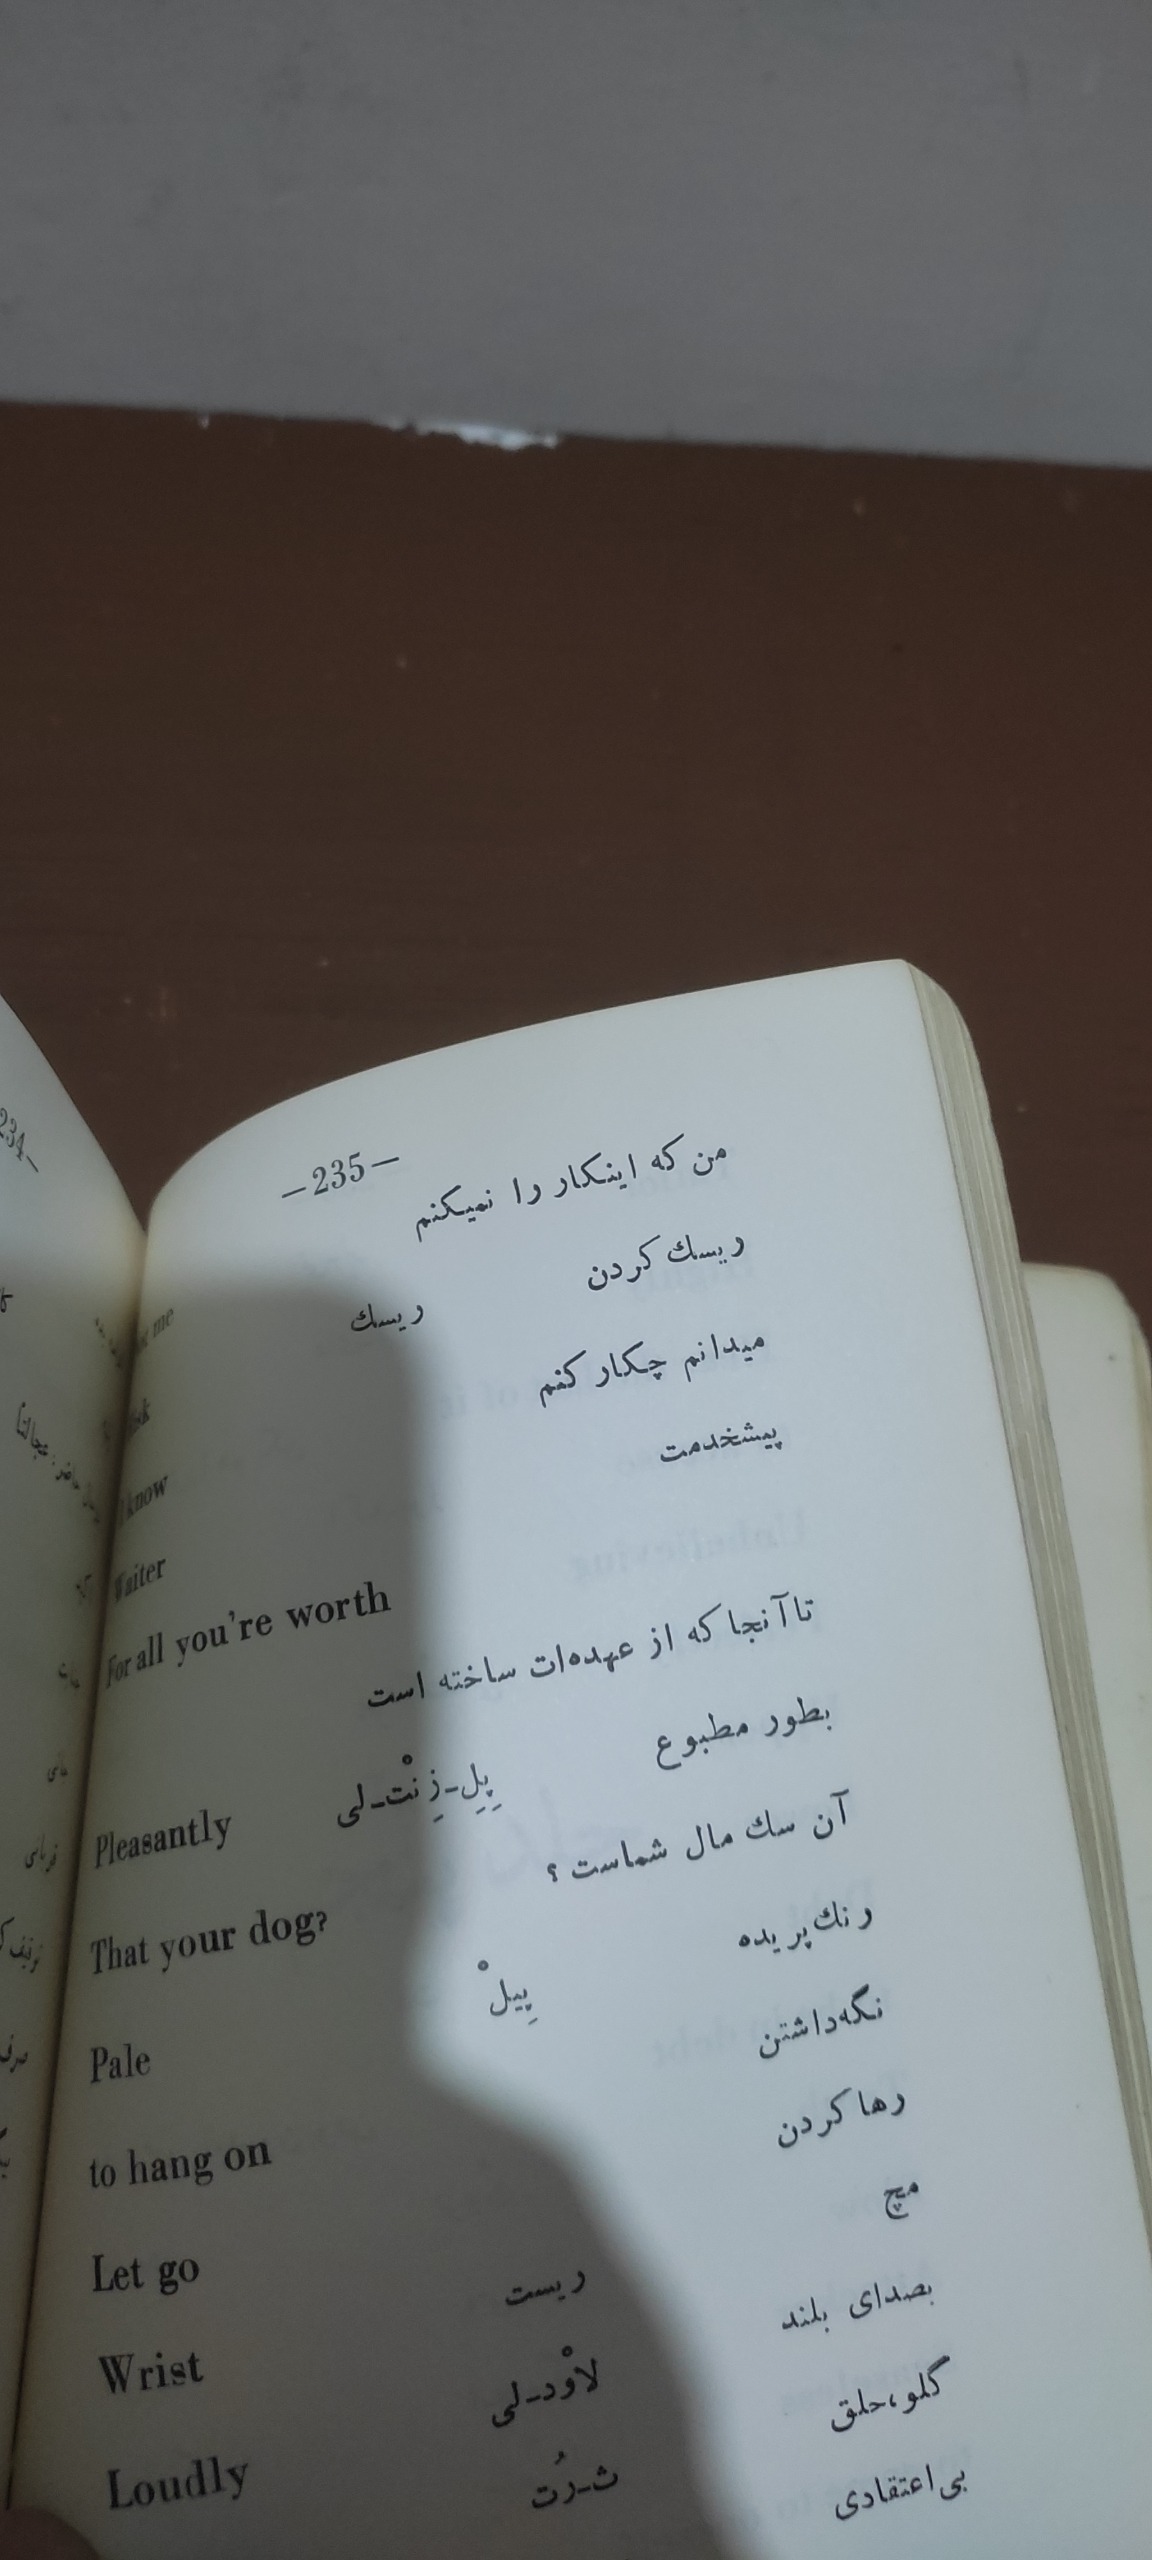 —235—
من که اینکار را نمیکنم
ریسك کردن
ریسك
me
میدانم چکار کنم
know
پیشخدمت
Waiter
For all you're worth
تا آنجا که از عهده‌ات ساخته است
Pleasantly پِلِـزِنْتـلی بطور مطبوع
That your dog? آن سك مال شماست ؟
Pale پِیلْ رنك پریده
to hang on نگه‌داشتن
Let go رها کردن
Wrist ریست مچ
Loudly لاوْدـلی بصدای بلند
ثـرُت گلو،حلق
بی‌اعتقادی
234—